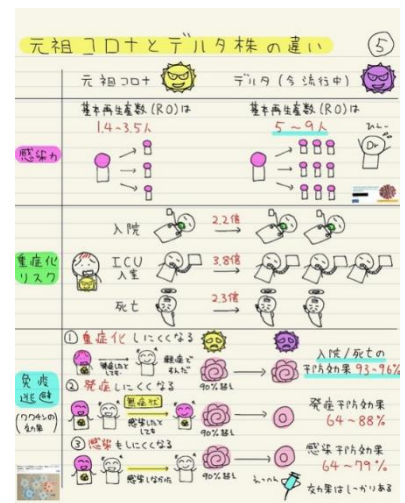 元祖コロナとデルタ株の違い ⑤
元祖コロナ
デルタ(今流行中)
感染力
基本再生産数(R0)は
1.4~3.5人
基本再生産数(R0)は
5~9人
Dr
重症化
リスク
入院
2.2倍
ICU
入室
3.8倍
死亡
2.3倍
免疫
逃避
(ワクチンの
効果)
① 重症化しにくくなる
感染したと
しても
軽症で
すんだ
90%越え
入院/死亡の
予防効果 93~96%
② 発症しにくくなる
無症状
感染したと
しても
90%越え
発症予防効果
64~88%
③ 感染もしにくくなる
感染しなかった
90%越え
感染予防効果
64~79%
効果はしっかりある